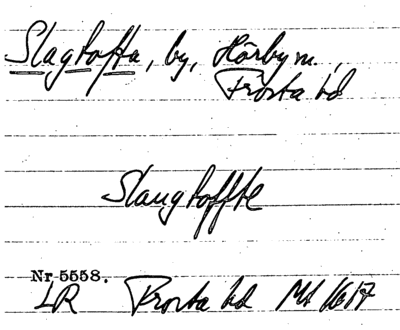 Slagtofta, by, Hörby sn.,
Frosta hd
Slaugtoffte
Nr 5558.
LR Frosta hd Ml 1617